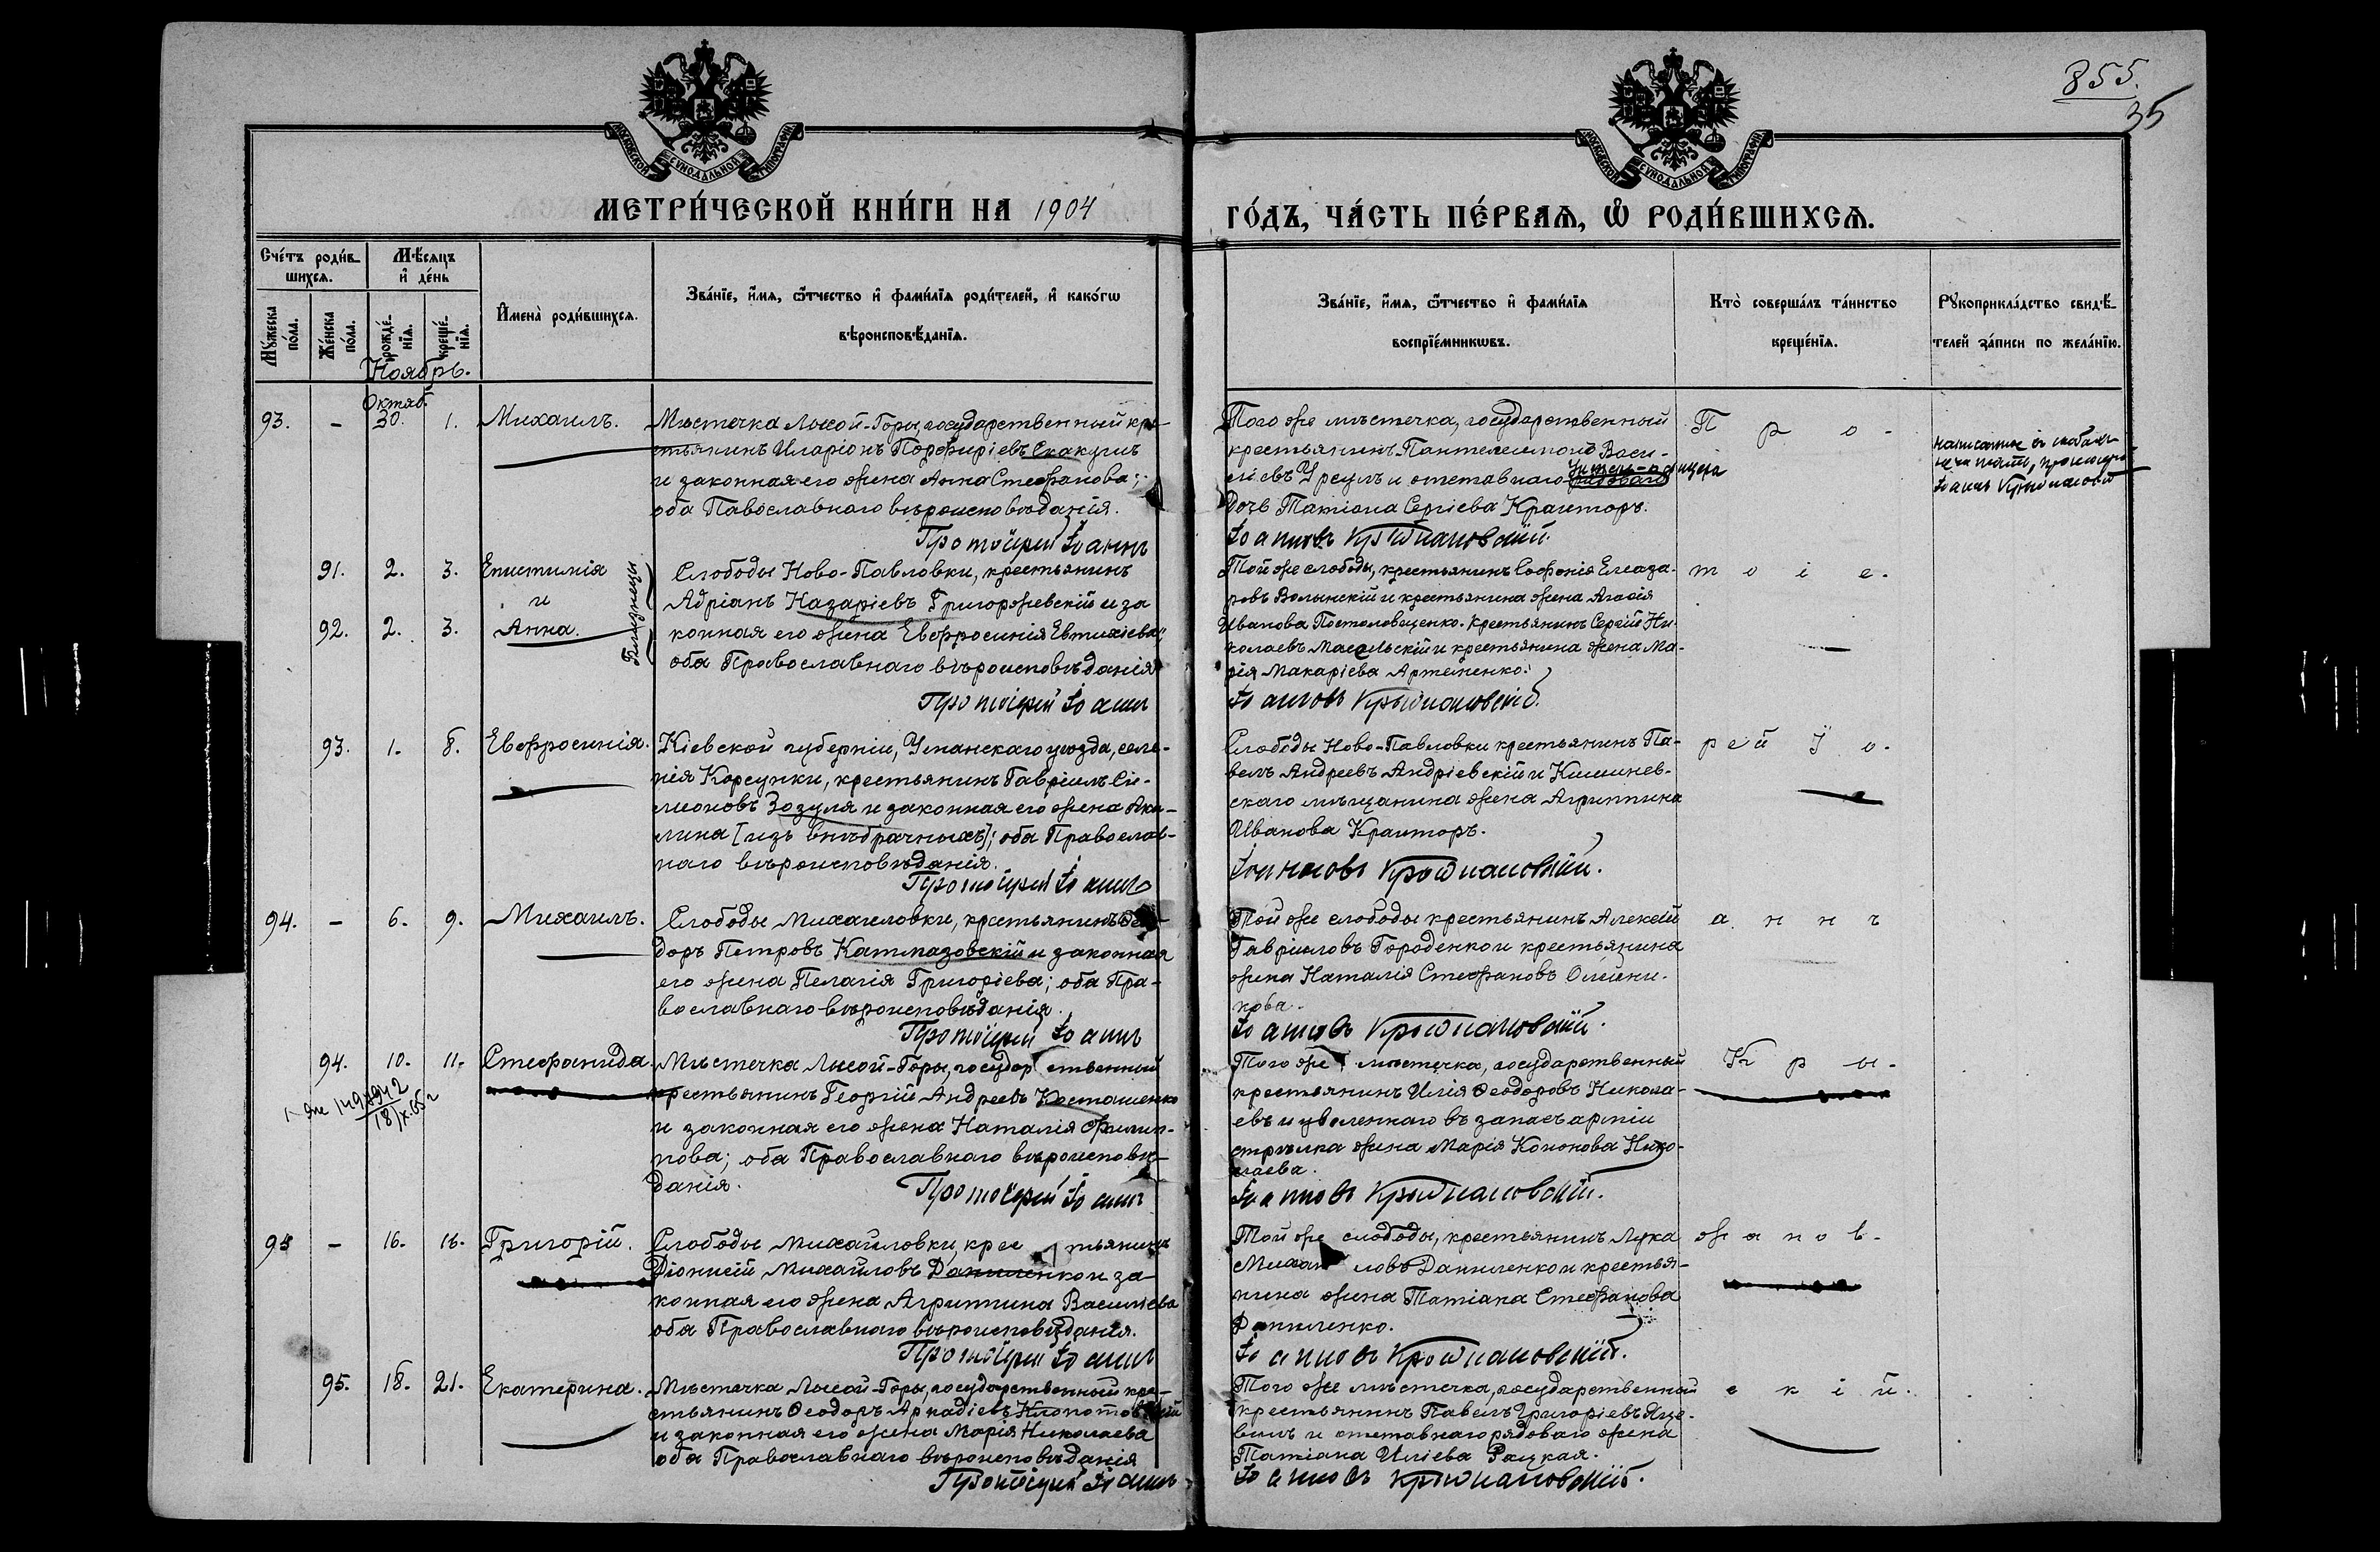 855.
35
МОСКОВСКОЙ СУНОДАЛЬНОЙ ТИПОГРАФІИ
МОСКОВСКОЙ СУНОДАЛЬНОЙ ТИПОГРАФІИ
МЕТРИ́ЧЕСКОЙ КНИ́ГИ НА 1904
ГО́ДЪ, ЧА́СТЬ ПЕ́РВАѦ, Ѡ҆ РОДИ́ВШИХСѦ.
Сче́тъ роди́в-
шихсѧ.
Мѣ́сѧцъ
и҆ де́нь
Мꙋ́жеска по́ла.
Же́нска по́ла.
рожде́-нїѧ.
креще́-нїѧ.
И҆мена̀ роди́вшихсѧ.
Зва́нїе, и҆́мѧ, ѻ҆́тчество и҆ фами́лїѧ роди́телей, и҆ како́гѡ
вѣроисповѣ́данїѧ.
Зва́нїе, и҆́мѧ, ѻ҆́тчество и҆ фами́лїѧ
воспрїе́мникѡвъ.
Кто̀ соверша́лъ та́инство
креще́нїѧ.
Рꙋкоприкла́дство свидѣ́-
телей за́писи по жела́нїю.
Ноябрь.
Октяб.
93. - 30. 1. Михаилъ.
Мѣстечка Лысой-Горы, государственный кре-
стьянинъ Иларіонъ Порфиріевъ Скакунъ
и законная его жена Анна Стефанова;
оба Павославнаго вѣроисповѣданія.
Протоіерей Іоаннъ
Того же мѣстечка, государственный
крестьянинъ Пантелеимонъ Васи-
ліевъ Урсулъ и отставнаго рядоваго Унтеръ-офицера
Дочь Татіана Сергіева Кранторъ.
Іоанновъ Крыжановскій.
П р о -
91. 2. 3. Епистимія
и
92. 2. 3. Анна.
Близнецы
Слободы Ново-Павловки, крестьянинъ
Адріанъ Назаріевъ Григоржевскій и за
конная его жена Евфросинія Евтихіева;
оба Православнаго вѣроисповѣданія
Протоіерей Іоаннъ
Той же слободы, крестьянинъ Софонія Елеаза-
ровъ Волынскій и крестьянина жена Агафія
Иванова Постоловщенко. Крестьянинъ Сергій Ни-
колаевъ и крестьянина жена Ма-
рія Макаріева Артеменко.
Іоанновъ Крыжановскій.
т о і е -
93. 1. 8. Евфросинія.
Кіевской губерніи, Уманскаго уѣзда, селе-
нія Корсунки, крестьянинъ Гавріилъ Си-
меоновъ Зозуля и законная его жена Аки-
лина [изъ внѣбрачныхъ]; оба Православ-
наго вѣроисповѣданія.
Протоіерей Іоаннъ
Слободы Ново-Павловки крестьянинъ Па-
велъ Андреевъ Андріевскій и Кишинев-
скаго мѣщанина жена Агриппина
Иванова Кранторъ.
Іоанновъ Крыжановскій.
р е й І о -
94. - 6. 9. Михаилъ.
Слободы Михайловки, крестьянинъ Ѳео-
доръ Петровъ Катмазовскій и законная
его жена Пелагія Григоріева; оба Пра-
вославнаго вѣроисповѣданія.
Протоіерей Іоаннъ
Той же слободы крестьянинъ Алексій
Гавріиловъ Городенко и крестьянина
жена Наталія Стефановъ Олейни-
кова.
Іоанновъ Крыжановскій.
а н н ъ
94. 10. 11. Стефанида.
Мѣстечка Лысой-Горы, государственный
крестьянинъ Георгій Андреевъ Косташенко
и законная его жена Наталія Филип-
пова; оба Православнаго вѣроисповѣ-
данія.
Протоіерей Іоаннъ
Того же мѣстечка, государственный
крестьянинъ Илія Ѳеодоровъ Никола-
евъ и уволеннаго въ запасъ арміи
стрѣлка жена Марія Кононова Нико-
лаева.
Іоанновъ Крыжановскій.
К р ы -
95 - 16. 16. Григорій.
Слободы Михайловки, крестьянинъ
Діонисій Михайловъ Даниленко и за-
конная его жена Агриппина Василіева
оба Православнаго вѣроисповѣданія.
Протоіерей Іоаннъ
Той же слободы, крестьянинъ Лука
Михайловъ Даниленко и крестья-
нина жена Татіана Стефанова
Даниленко.
Іоанновъ Крыжановскій.
ж а н о в -
95. 18. 21. Екатерина.
Мѣстечка Лысой-Горы, государственный кре-
стьянинъ Ѳеодоръ Аркадіевъ Клопотовскій
и законная его жена Марія Николаева
оба Православнаго вѣроисповѣданія
Протоіерей Іоаннъ
Того же мѣстечка, государственный
крестьянинъ Павелъ Григоріевъ Яце-
вилъ и отставнаго рядоваго жена
Татіана Иліева Рацкая.
Іоанновъ Крыжановскій.
с к і й.